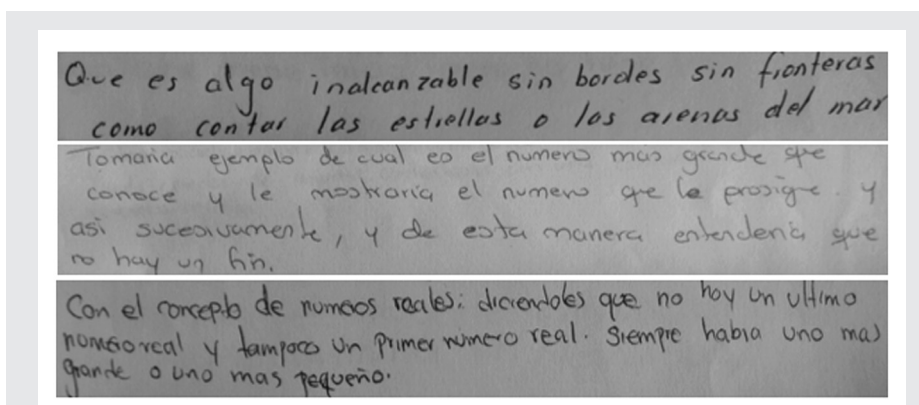 Que es algo inalcanzable sin bordes sin fronteras
como contar las estrellas o las arenas del mar
Tomaria ejemplo de cual es el numero mas grande que
conoce y le mostraria el numero que le prosigue. y
asi sucesivamente, y de esta manera entenderia que
no hay un fin.
Con el concepto de numeros reales: diciendoles que no hay un ultimo
numero real y tampoco un primer numero real. Siempre habia uno mas
grande o uno mas pequeño.